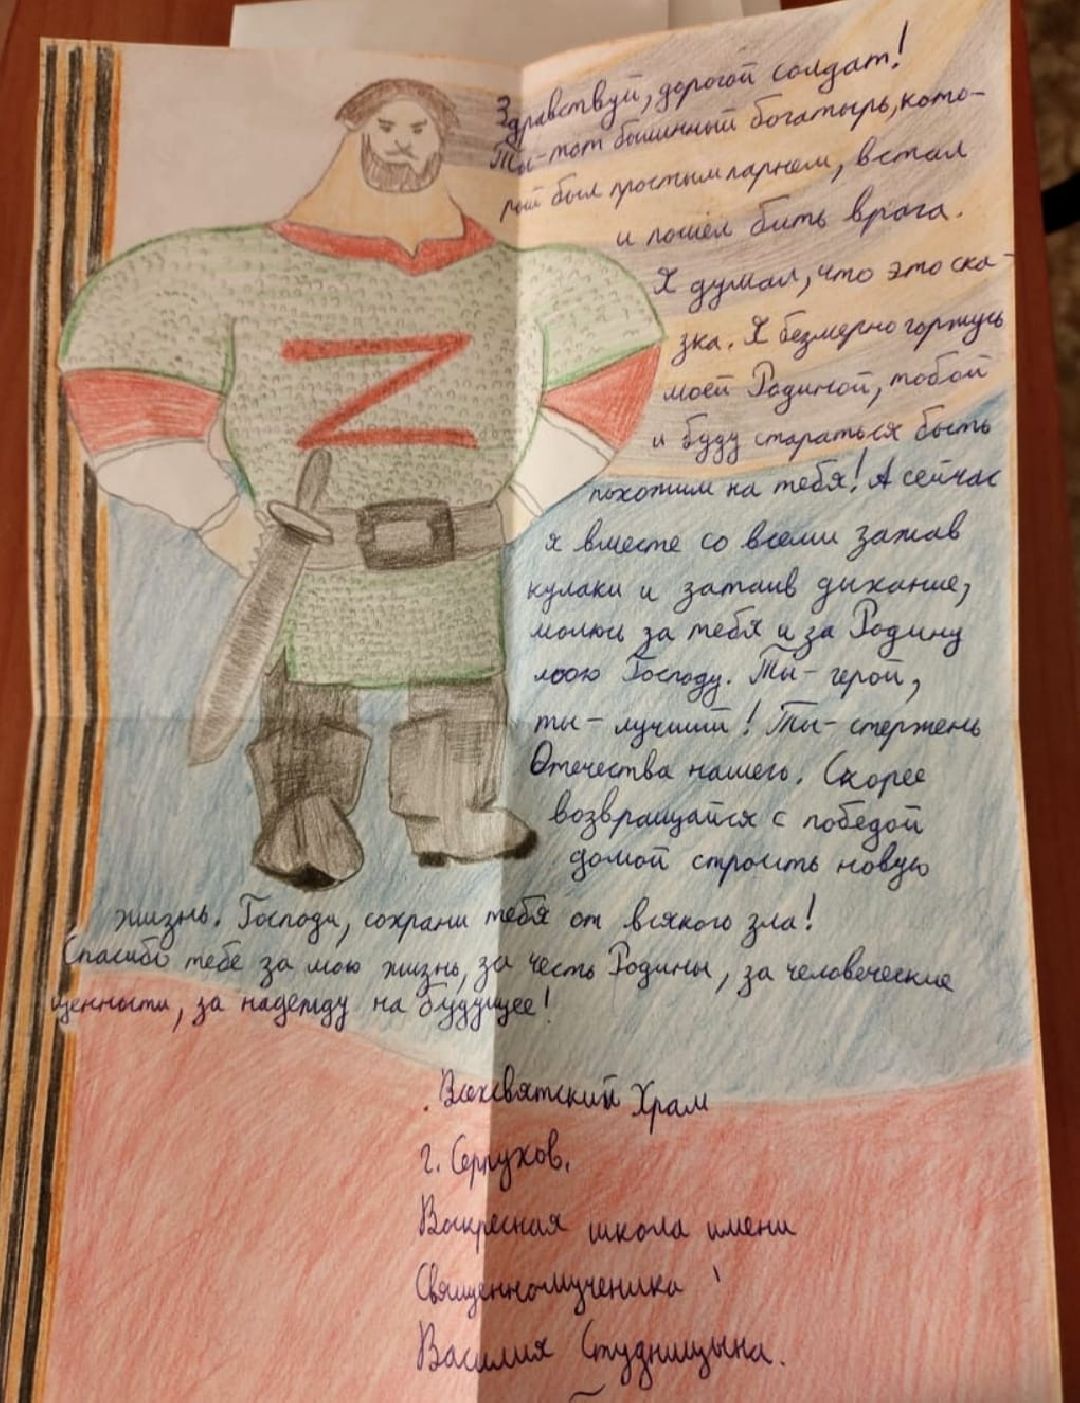 Здравствуй, дорогой солдат!
Ты-тот былинный богатырь, кото-
рый был простым парнем, встал
и пошёл бить врага.
Я думал, что это ска-
зка. Я безмерно горжусь
моей Родиной, тобой
и буду стараться быть
похожим на тебя! А сейчас
я вместе со всеми зажав
кулаки и затаив дыхание,
молюсь за тебя и за Родину
мою Господу. Ты-герой,
ты-лучший! Ты-стержень
Отечества нашего. Скорее
возвращайся с победой
домой строить новую
жизнь. Господи, сохрани тебя от всякого зла!
Спасибо тебе за мою жизнь, за честь Родины, за человеческие
ценности, за надежду на будущее!
Z
Всехсвятский Храм
г. Серпухов.
Воскресная школа имени
Священномученика
Василия Студницына.